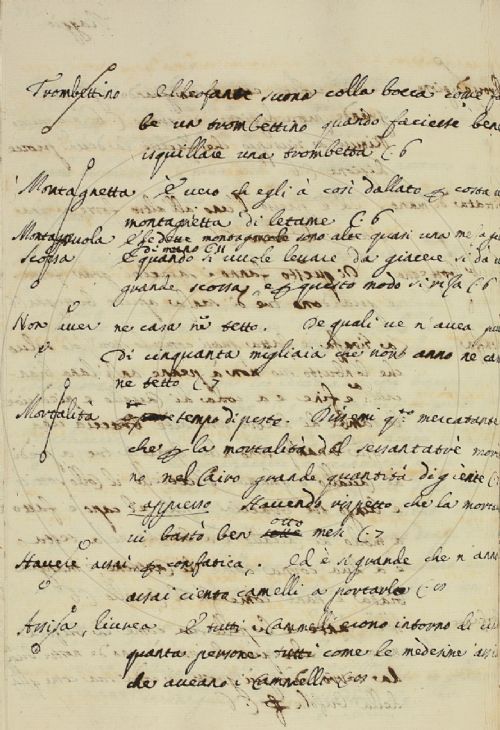 Trombettino Elleofante suona colla bocca come
be un trombettino quando faciesse bene
isquillare una trombetta C 6
Montagnetta È vero ch egli à così dallato p costa
montagnetta di letame C. 6
Montagnuola E le dette montagnuole sono alte quasi una me
di mano C 11
Scossa E quando si vuole levare da giacere si da
grande scossa, e p questo modo si rizza C 6
Non aver ne casa ne tetto. De quali ve n'avea
Di cinquanta migliaia che non anno ne ca
ne tetto C 7
Mortalita tempo di peste. Dissemi q.to mercatante
che p la mortalità del sessantatrè
no nel Cairo grande quantità di giente C
e appresso. Havendo rispetto che la morta
vi bastò ben otto mesi C 7
Havere assai p confatica. Ed è si grande che n anno
assai ciento camelli a portarlo C
Assisa, livrea E tutti i Cammelli eiono intorno di
quanta persone tutti come le medesime
che aveano i Cammelli C